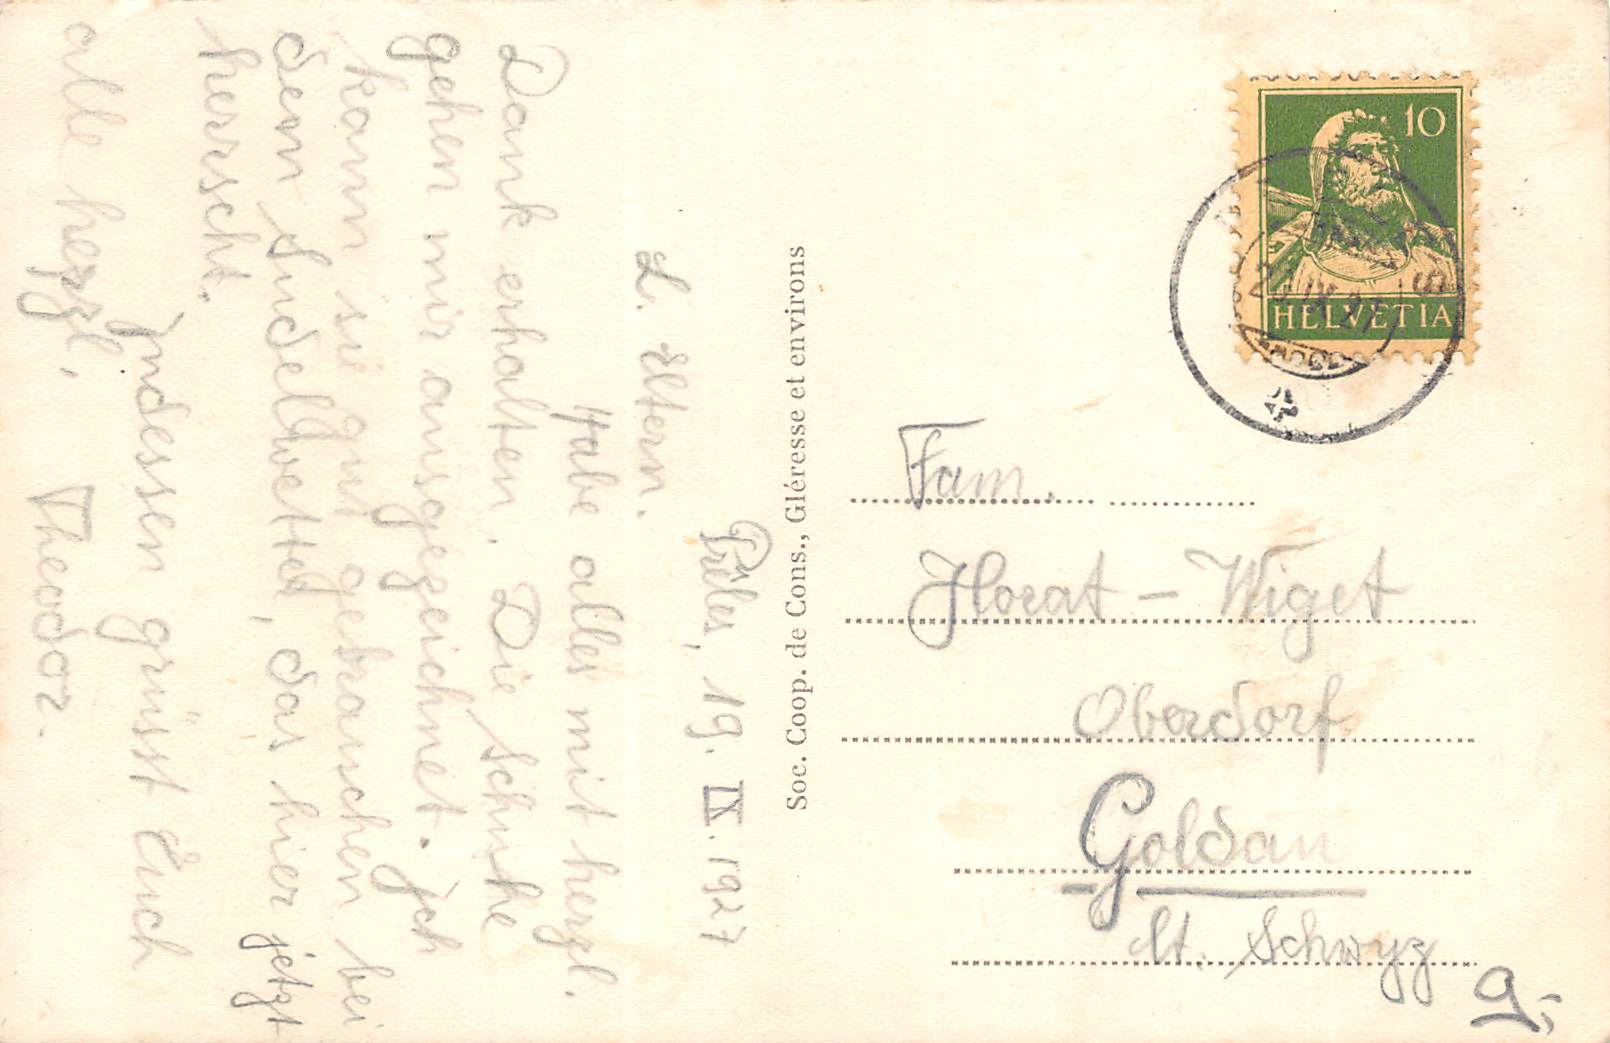 Prêles, 19. IX. 1927
L. Eltern.
Habe alles mit herzl.
Dank erhalten. Die Schuhe
gehen mir ausgezeichnet. Ich
kann sie gut gebrauchen bei
dem Sudelwetter, das hier jetzt
herrscht.
Indessen grüsst Euch
alle herzl. Theodor.
Soc. Coop. de Cons., Gléresse et environs
10
HELVETIA
IX.27
Fam.
Horat - Wiget
Oberdorf
Goldau
Kt. Schwyz
9.-